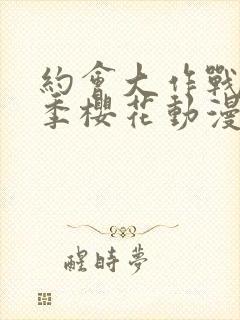 約會大作戰
季櫻花動漫
醒時夢